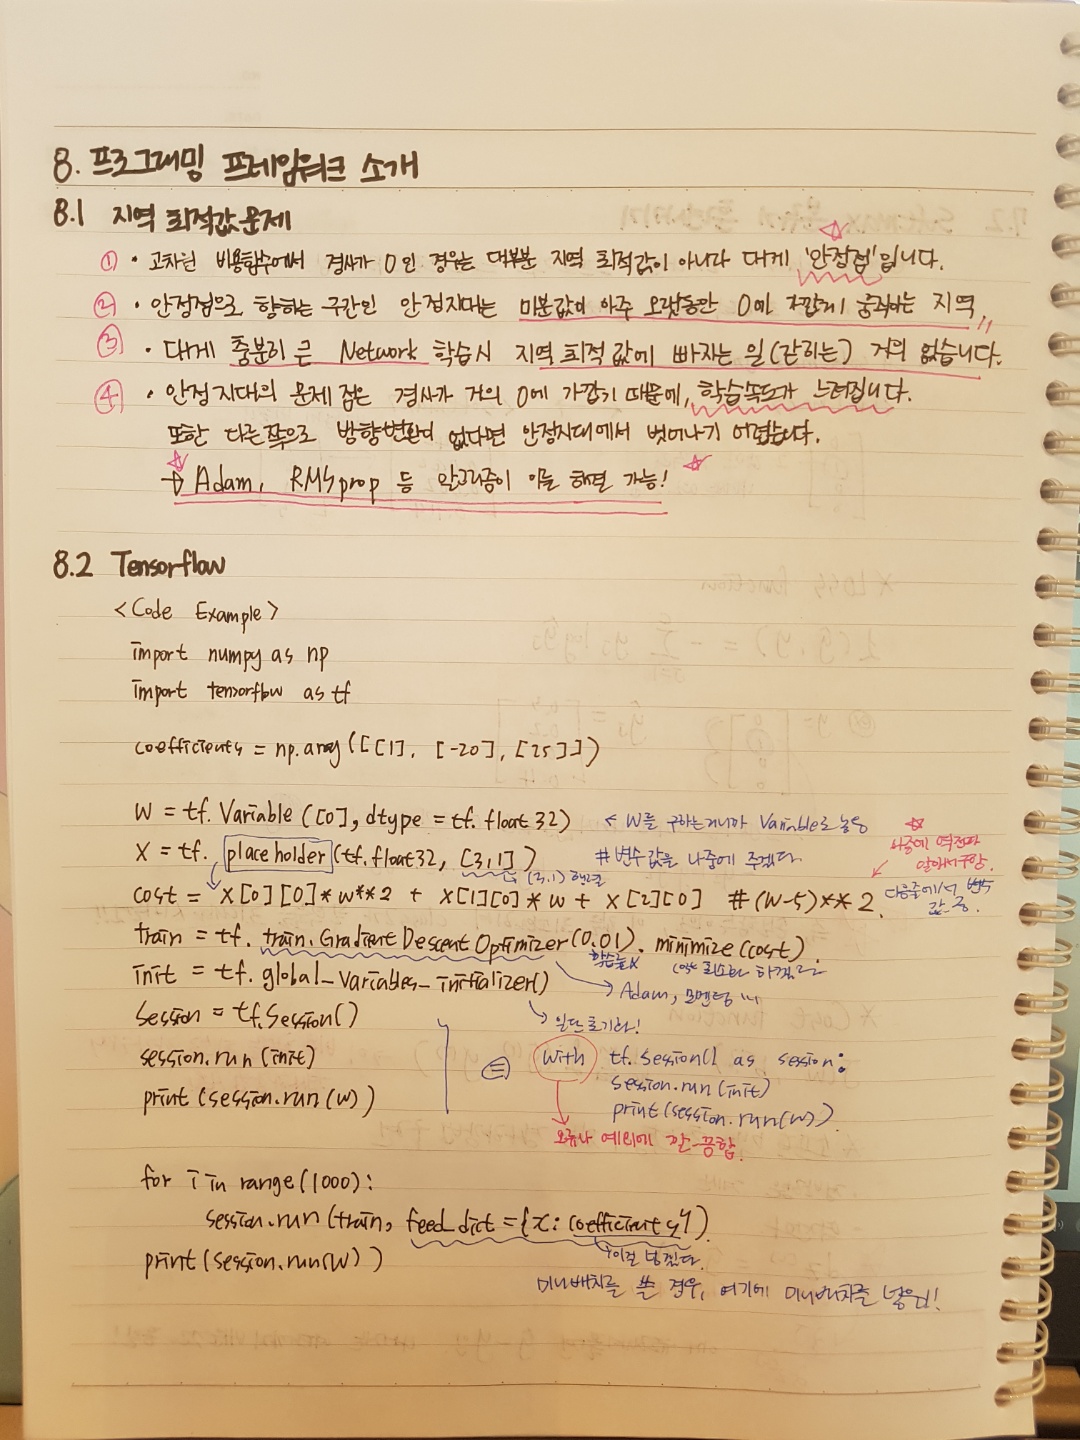 8. 프로그래밍 프레임워크 소개
8.1 지역 최적값 문제
① · 고차원 비용함수에서 경사가 0인 경우는 대부분 지역 최적값이 아니라 대게 '안장점'입니다.
② · 안정점으로 향하는 구간인 안정지대는 미분값이 아주 오랫동안 0에 가깝게 유지하는 지역
③ · 대게 충분히 큰 Network 학습시 지역 최적값에 빠지는 일(갇히는) 거의 없습니다.
④ · 안정지대의 문제점은 경사가 거의 0에 가깝기 때문에, 학습속도가 느려집니다.
또한 다른쪽으로 방향변환이 없다면 안정지대에서 벗어나기 어렵습니다.
→ Adam, RMSprop 등 알고리즘이 이를 해결 가능!
8.2 Tensorflow
<Code Example>
import numpy as np
import tensorflow as tf
coefficients = np.array([[1], [-20], [25]])
W = tf.Variable([0], dtype = tf.float32) ← W를 구하는거니까 Variable로 놓음
X = tf.placeholder(tf.float32, [3,1]) # 변수 값을 나중에 주겠다
↳ (3,1) 행렬
나중에 역전파 알아서 구함
cost = X[0][0]*w**2 + X[1][0]*w + X[2][0] #(W-5)**2 다음줄에서 변수 값 줌.
train = tf.train.GradientDescentOptimizer(0.01).minimize(cost)
학습률α cost 최소화 하겠다
→ Adam, 모멘텀 …
init = tf.global_variables_initializer()
→ 일단 초기화!
session = tf.Session()
session.run(init)
print(session.run(w))
= with tf.Session() as session:
session.run(init)
print(session.run(w))
오류나 예외에 깔끔함.
for i in range(1000):
session.run(train, feed_dict={x: coefficients})
이걸 넣겠다.
print(session.run(W))
미니배치를 쓸 경우, 여기에 미니배치를 넣음!